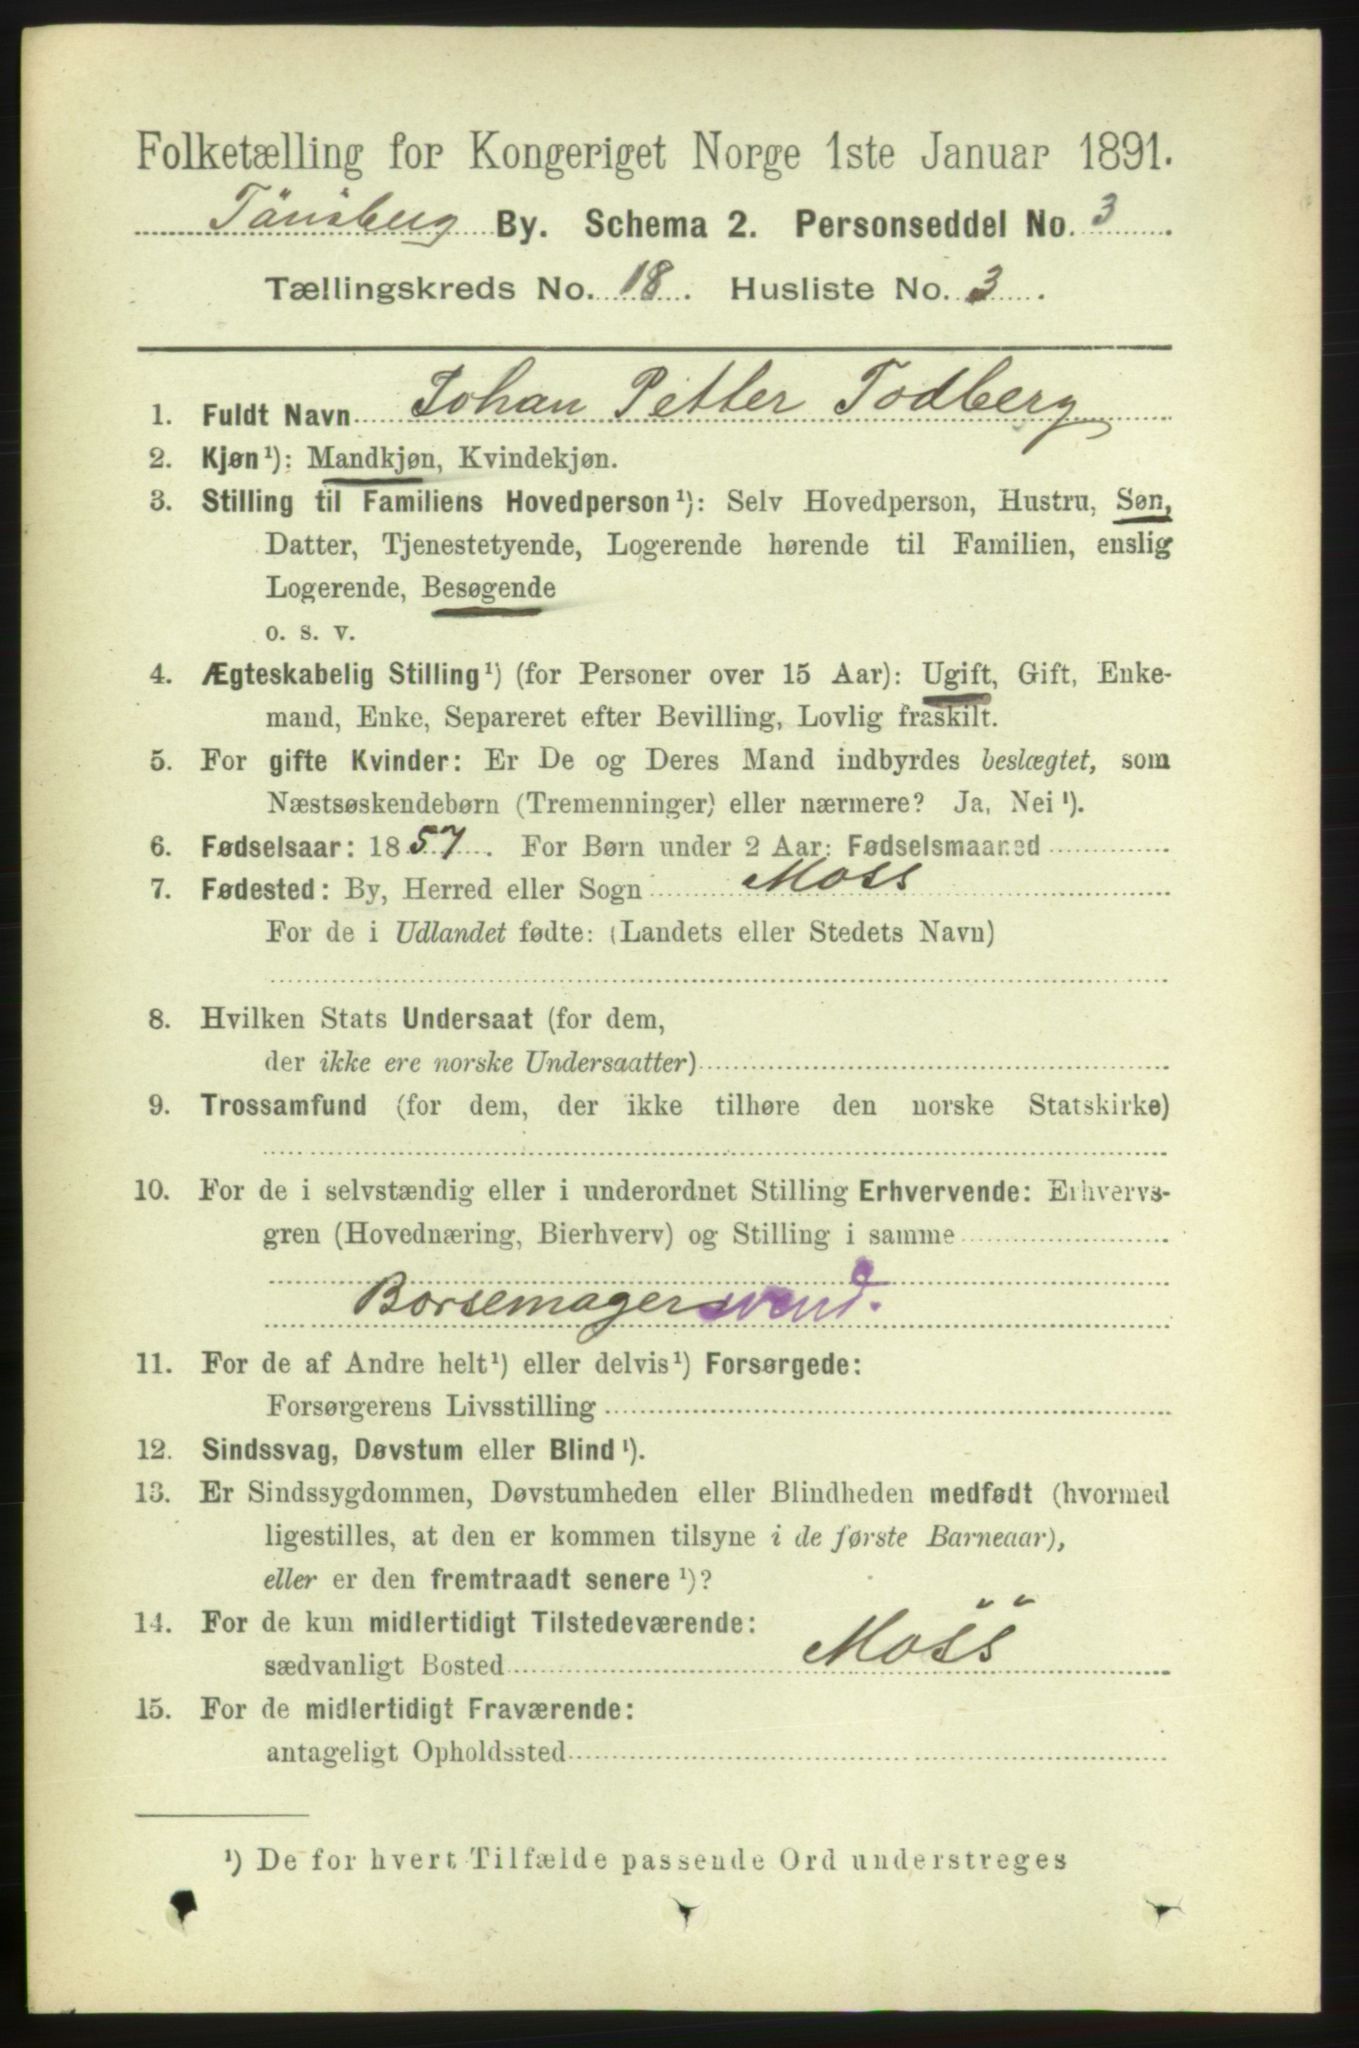 Folketælling for Kongeriget Norge 1ste Januar 1891.
Tönsberg By. Schema 2. Personseddel No. 3
Tællingskreds No. 18. Husliste No. 3.
1. Fuldt Navn Johan Petter Todberg
2. Kjøn¹): Mandkjøn, Kvindekjøn.
3. Stilling til Familiens Hovedperson¹): Selv Hovedperson, Hustru, Søn,
Datter, Tjenestetyende, Logerende hørende til Familien, enslig
Logerende, Besøgende
o. s. v.
4. Ægteskabelig Stilling¹) (for Personer over 15 Aar): Ugift, Gift, Enke-
mand, Enke, Separeret efter Bevilling, Lovlig fraskilt.
5. For gifte Kvinder: Er De og Deres Mand indbyrdes beslægtet, som
Næstsøskendebørn (Tremenninger) eller nærmere? Ja, Nei¹).
6. Fødselsaar: 1857. For Børn under 2 Aar: Fødselsmaaned
7. Fødested: By, Herred eller Sogn Moss
For de i Udlandet fødte: (Landets eller Stedets Navn)
8. Hvilken Stats Undersaat (for dem,
der ikke ere norske Undersaatter)
9. Trossamfund (for dem, der ikke tilhøre den norske Statskirke)
10. For de i selvstændig eller i underordnet Stilling Erhvervende: Erhvervs-
gren (Hovednæring, Bierhverv) og Stilling i samme
Borsemagersvend.
11. For de af Andre helt¹) eller delvis¹) Forsørgede:
Forsørgerens Livsstilling
12. Sindssvag, Døvstum eller Blind¹).
13. Er Sindssygdommen, Døvstumheden eller Blindheden medfødt (hvormed
ligestilles, at den er kommen tilsyne i de første Barneaar),
eller er den fremtraadt senere¹)?
14. For de kun midlertidigt Tilstedeværende:
sædvanligt Bosted Moss
15. For de midlertidigt Fraværende:
antageligt Opholdssted
¹) De for hvert Tilfælde passende Ord understreges